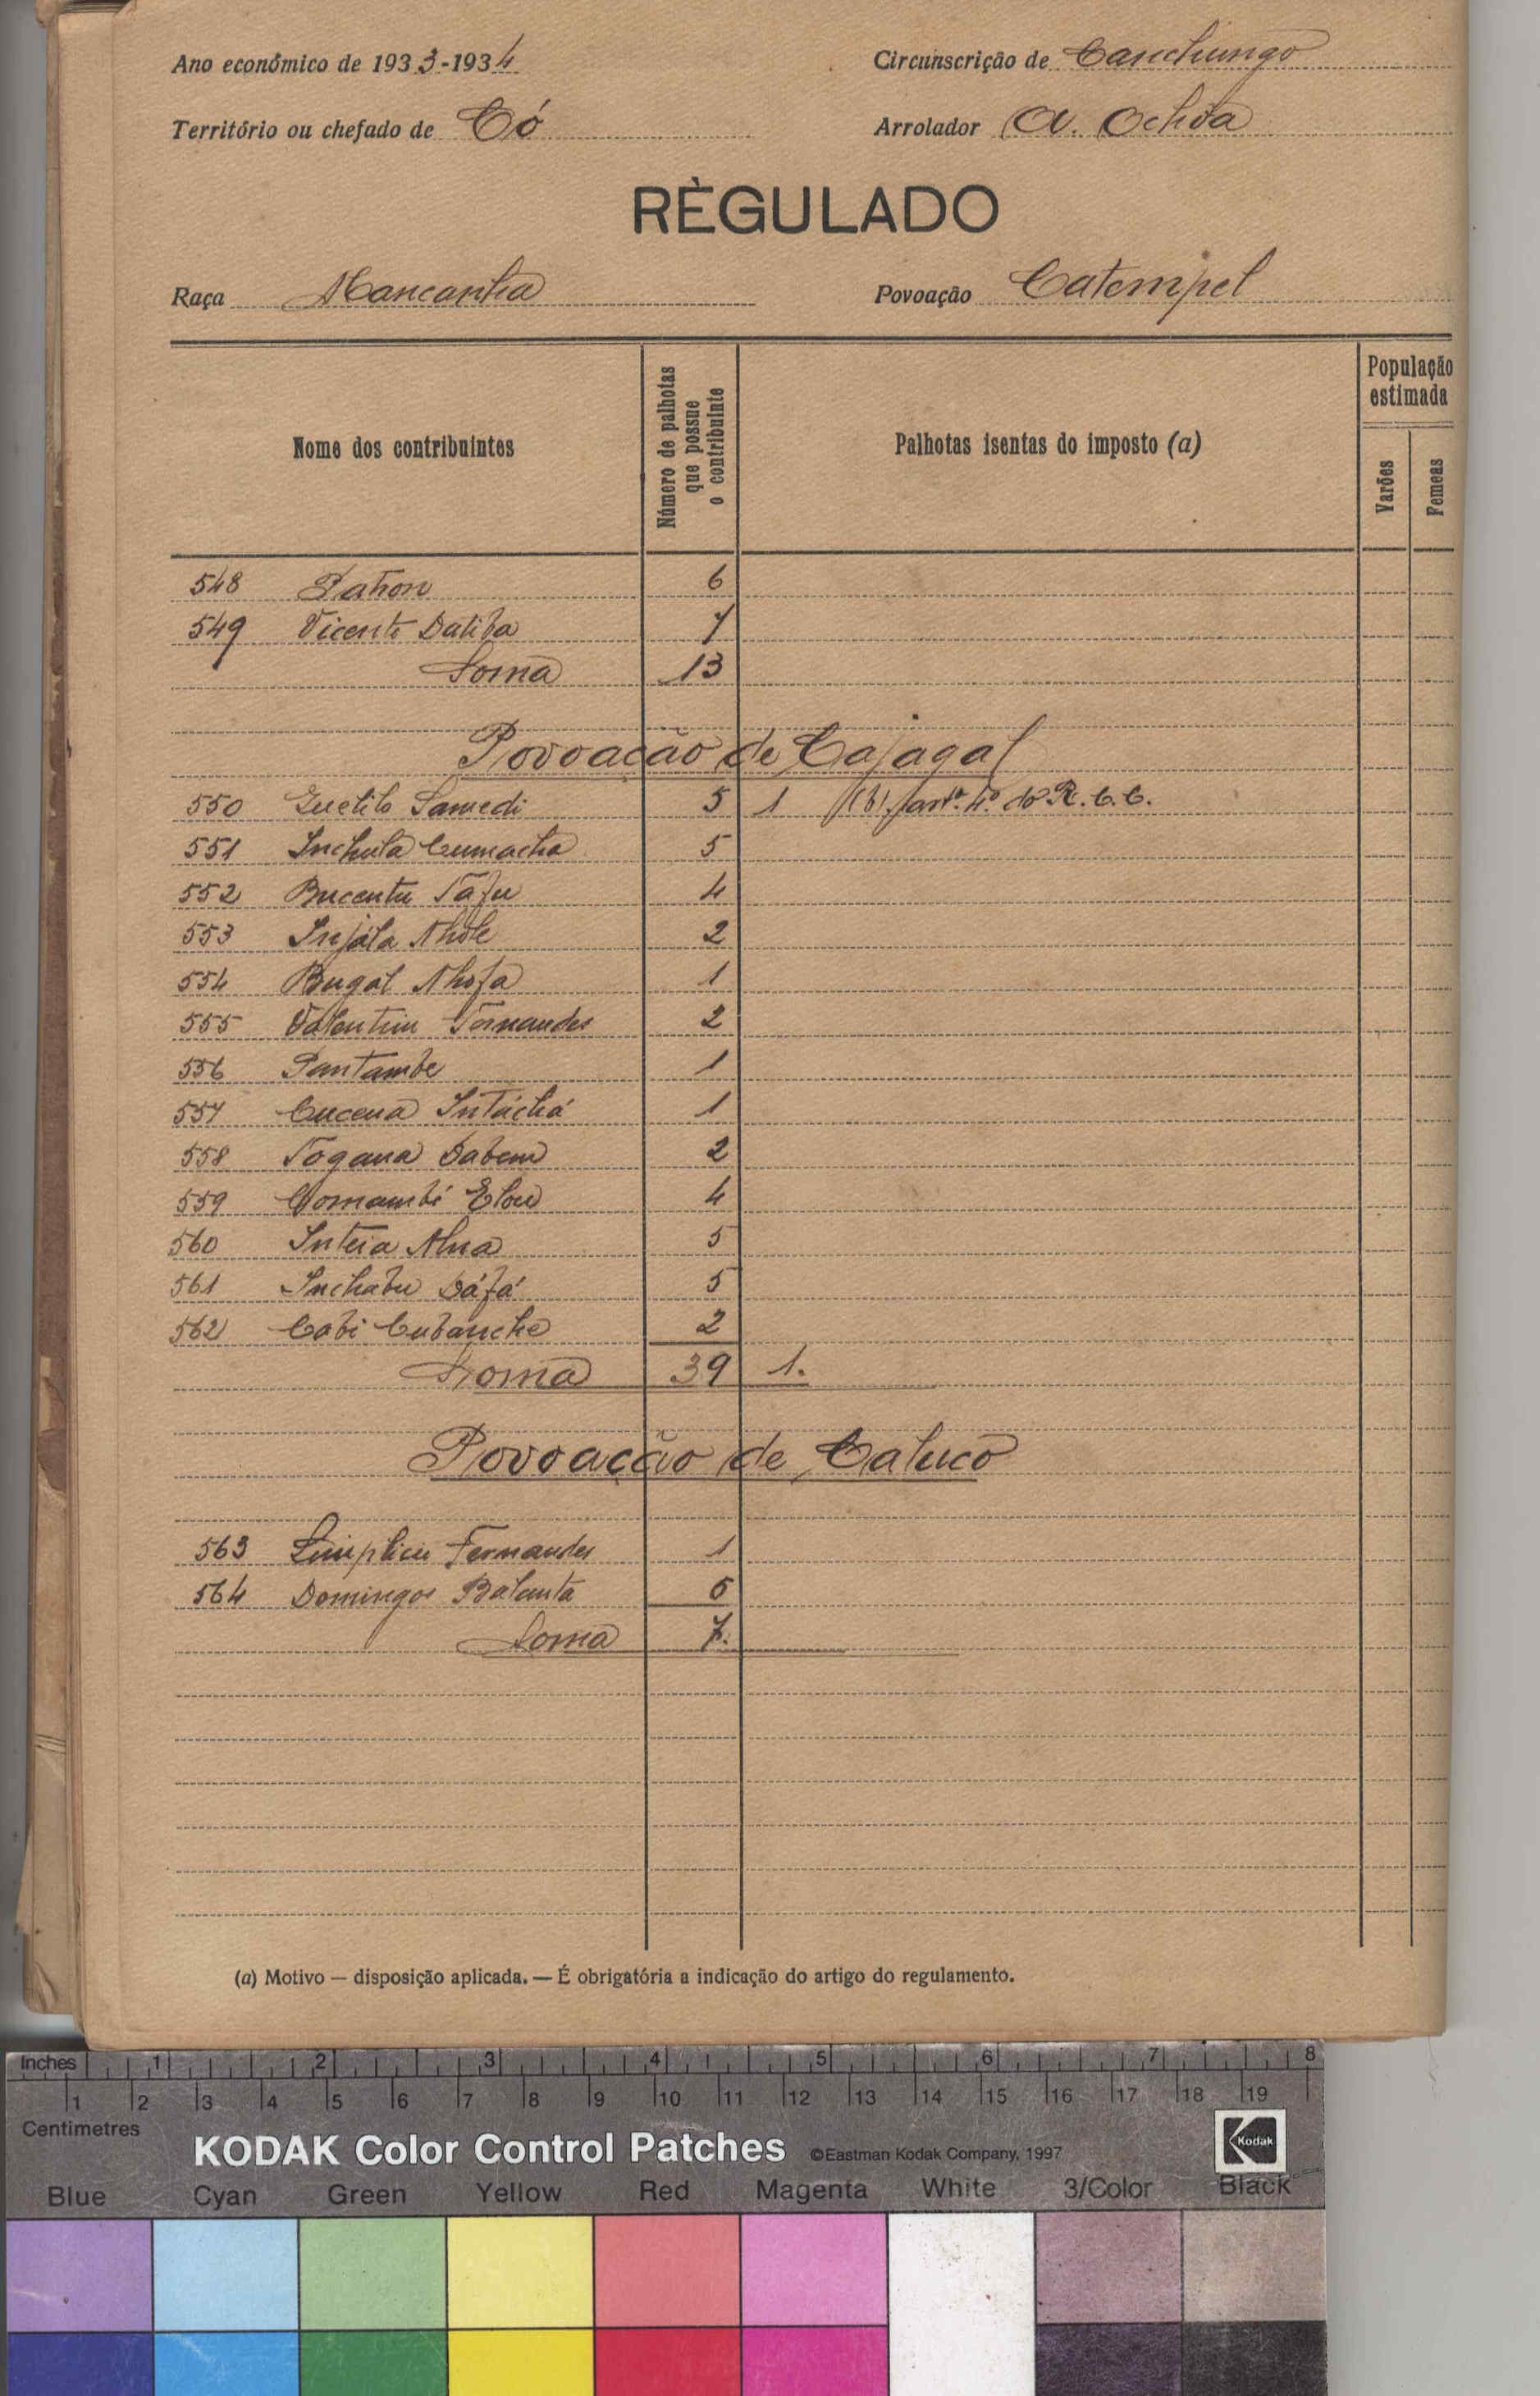 Ano económico de 1933-1934
Circunscrição de Canchungo
Território ou chefado de Có
Arrolador A. Ochôa
RÈGULADO
Raça Mancanha
Povoação Catempel
Nome dos contribuintes
Número de palhotas que possue o contribuinte
Palhotas isentas do imposto (a)
População estimada
Varões
Femeas
548 Pahon 6
549 Vicente Datiba 7
Soma 13
Povoação de Cajagal
550 Samedi 5 1 (b) artº. 4º. do R. C. C.
551 Inchula Cumacha 5
552 Bucentu Táfu 4
553 Injála Nhole 2
554 Bugal Nhofa 1
555 Valentim Fernandes 2
556 Pantambe 1
557 Cucena Intáchá 1
558 Togana Dabem 2
559 Comambi Elou 4
560 Inteia 5
561 Inchabu Dáfá 5
562 Cabi Cubanche 2
Soma 39 1.
Povoação de Caluco
563 Simplicio Fernandes 1
564 Domingos Balanta 6
Soma 7.
(a) Motivo — disposição aplicada. — É obrigatória a indicação do artigo do regulamento.
Inches 1 2 3 4 5 6 7 8
1 2 3 4 5 6 7 8 9 10 11 12 13 14 15 16 17 18 19
Centimetres
KODAK Color Control Patches ©Eastman Kodak Company, 1997 Kodak
Blue Cyan Green Yellow Red Magenta White 3/Color Black